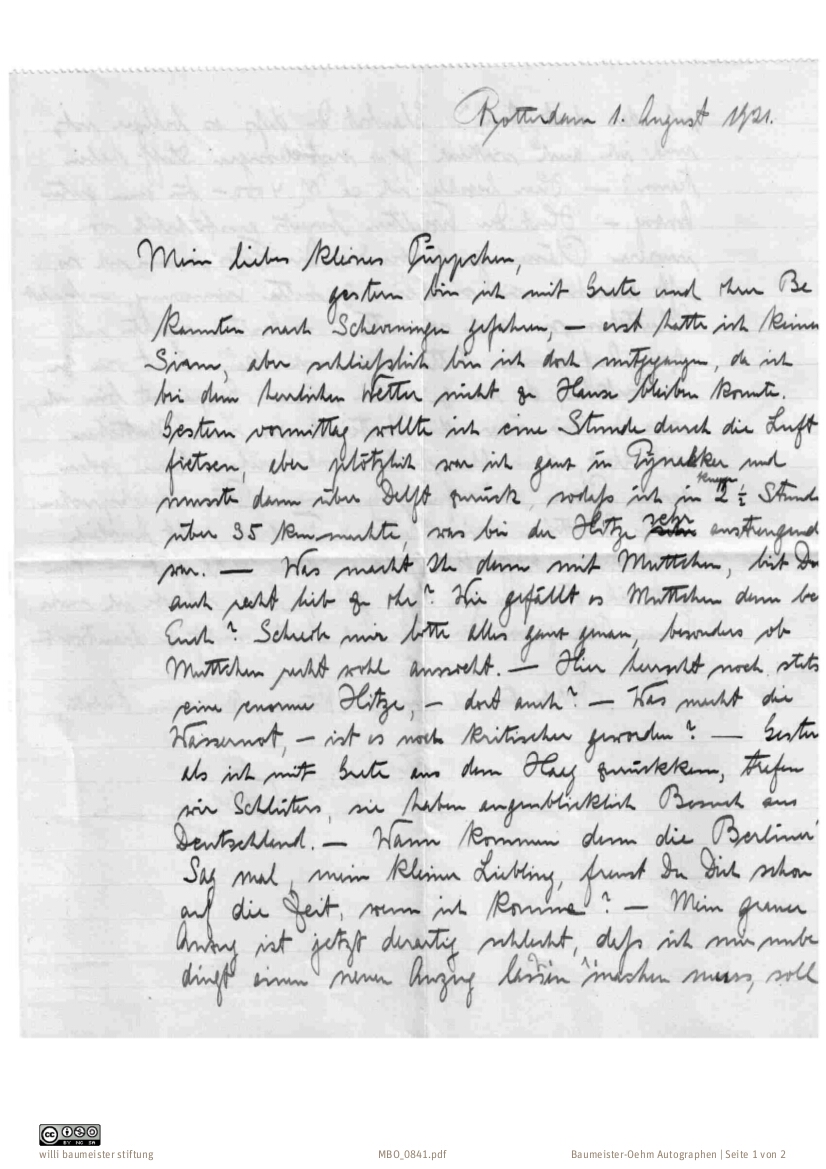 Rotterdam 1. August 1921.
Mein liebes kleines Püppchen,
gestern bin ich mit Grete und ihren Be
kannten nach Scheveningen gefahren, – erst hatte ich keinen
Sinn, aber schließlich bin ich doch mitgegangen, da ich
bei dem herrlichen Wetter nicht zu Hause bleiben konnte.
Gestern vormittag wollte ich eine Stunde durch die Luft
fietsen, aber plötzlich war ich ganz in Pynakker und
musste dann über Delft zurück, sodaß ich in knapp 2 ½ Stund
über 35 km machte, was bei der Hitze sehr anstrengend
war. – Was macht Ihr denn mit Muttchen, bist Du
auch recht lieb zu ihr? Wie gefällt es Muttchen denn bei
Euch? Schreib mir bitte alles ganz genau, besonders ob
Muttchen recht wohl aussieht. – Hier herrscht noch stets
eine enorme Hitze, – dort auch? – Was macht die
Wassernot, – ist es noch kritischer geworden? – Gestern
als ich mit Grete aus dem Haag zurückkam, trafen
wir Schlüters, sie haben augenblicklich Besuch aus
Deutschland. – Wann kommen denn die Berliner?
Sag mal, mein kleiner Liebling, freust Du Dich schon
auf die Zeit, wenn ich komme? – Mein grauer
Anzug ist jetzt derartig schlecht, daß ich mir unbe
dingt einen neuen Anzug lassen machen muss, soll
willi baumeister stiftung
MBO_0841.pdf
Baumeister-Oehm Autographen | Seite 1 von 2
CC BY NC SA